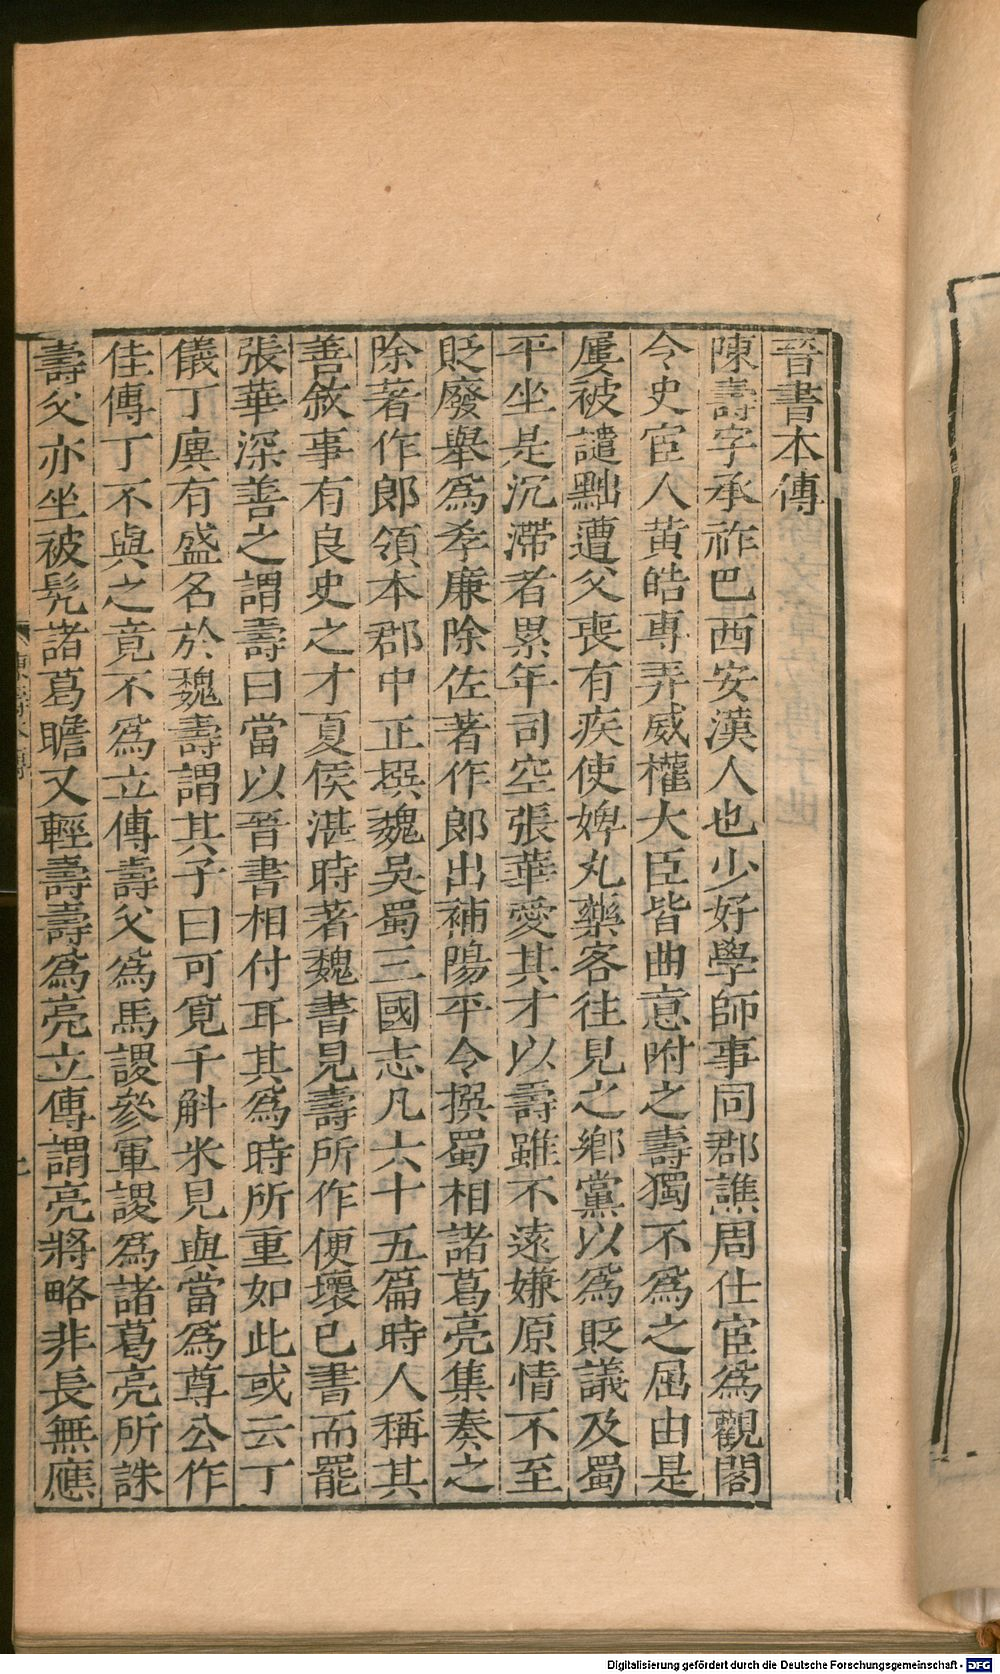 晉書本傳
陳壽字承祚巴西安漢人也少好學師事同郡譙周仕宦爲觀閣
令史宦人黃皓專弄威權大臣皆曲意附之壽獨不爲之屈由是
屢被譴黜遭父喪有疾使婢丸藥客往見之鄉黨以爲貶議及蜀
平坐是沉滯者累年司空張華愛其才以壽雖不遠嫌原情不至
貶廢舉爲孝廉除佐著作郎出補陽平令撰蜀相諸葛亮集奏之
除著作郎領本郡中正撰魏吳蜀三國志凡六十五篇時人稱其
善敘事有良史之才夏侯湛時著魏書見壽所作便壞已書而罷
張華深善之謂壽曰當以晉書相付耳其爲時所重如此或云丁
儀丁廙有盛名於魏壽謂其子曰可覓千斛米見與當爲尊公作
佳傳丁不與之竟不爲立傳壽父爲馬謖參軍謖爲諸葛亮所誅
壽父亦坐被髡諸葛瞻又輕壽壽爲亮立傳謂亮將略非長無應
Digitalisierung gefördert durch die Deutsche Forschungsgemeinschaft - DFG